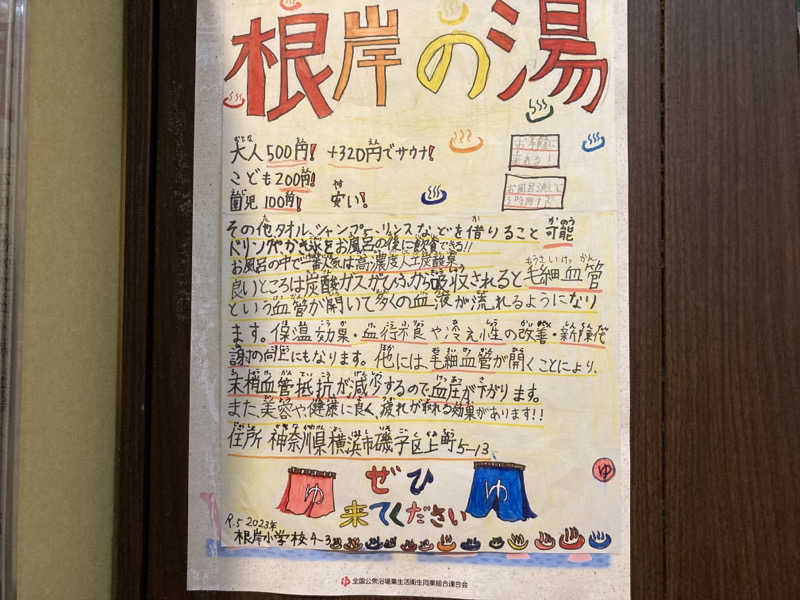 根岸の湯
大人500円! +320円でサウナ!
こども200円!
菌児100円! 安い!
お気軽に
お風呂洗いで
その他タオル、シャンプー、リンスなどを借りること可能
ドリンクやかき氷をお風呂の後に飲食できる!!
お風呂の中で一番人気は高濃度人工炭酸泉
良いところは炭酸ガスがひふから吸収されると毛細血管
という血管が開いて多くの血液が流れるようになり
ます。保温効果・血行不良や冷え性の改善・新陳代
謝の向上にもなります。他には、毛細血管が開くことにより、
末梢血管抵抗が減少するので血圧が下がります。
また、美容や、健康に良く、疲れが取れる効果があります!!
住所 神奈川県横浜市磯子区上町5-13
ゆ
ゆ ぜひ ゆ
来てください
R.5 2023年
根岸小学校4-3
ゆ 全国公衆浴場業生活衛生同業組合連合会